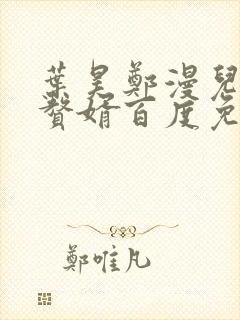 葉昊鄭漫兒
贅婿百度免
鄭唯凡